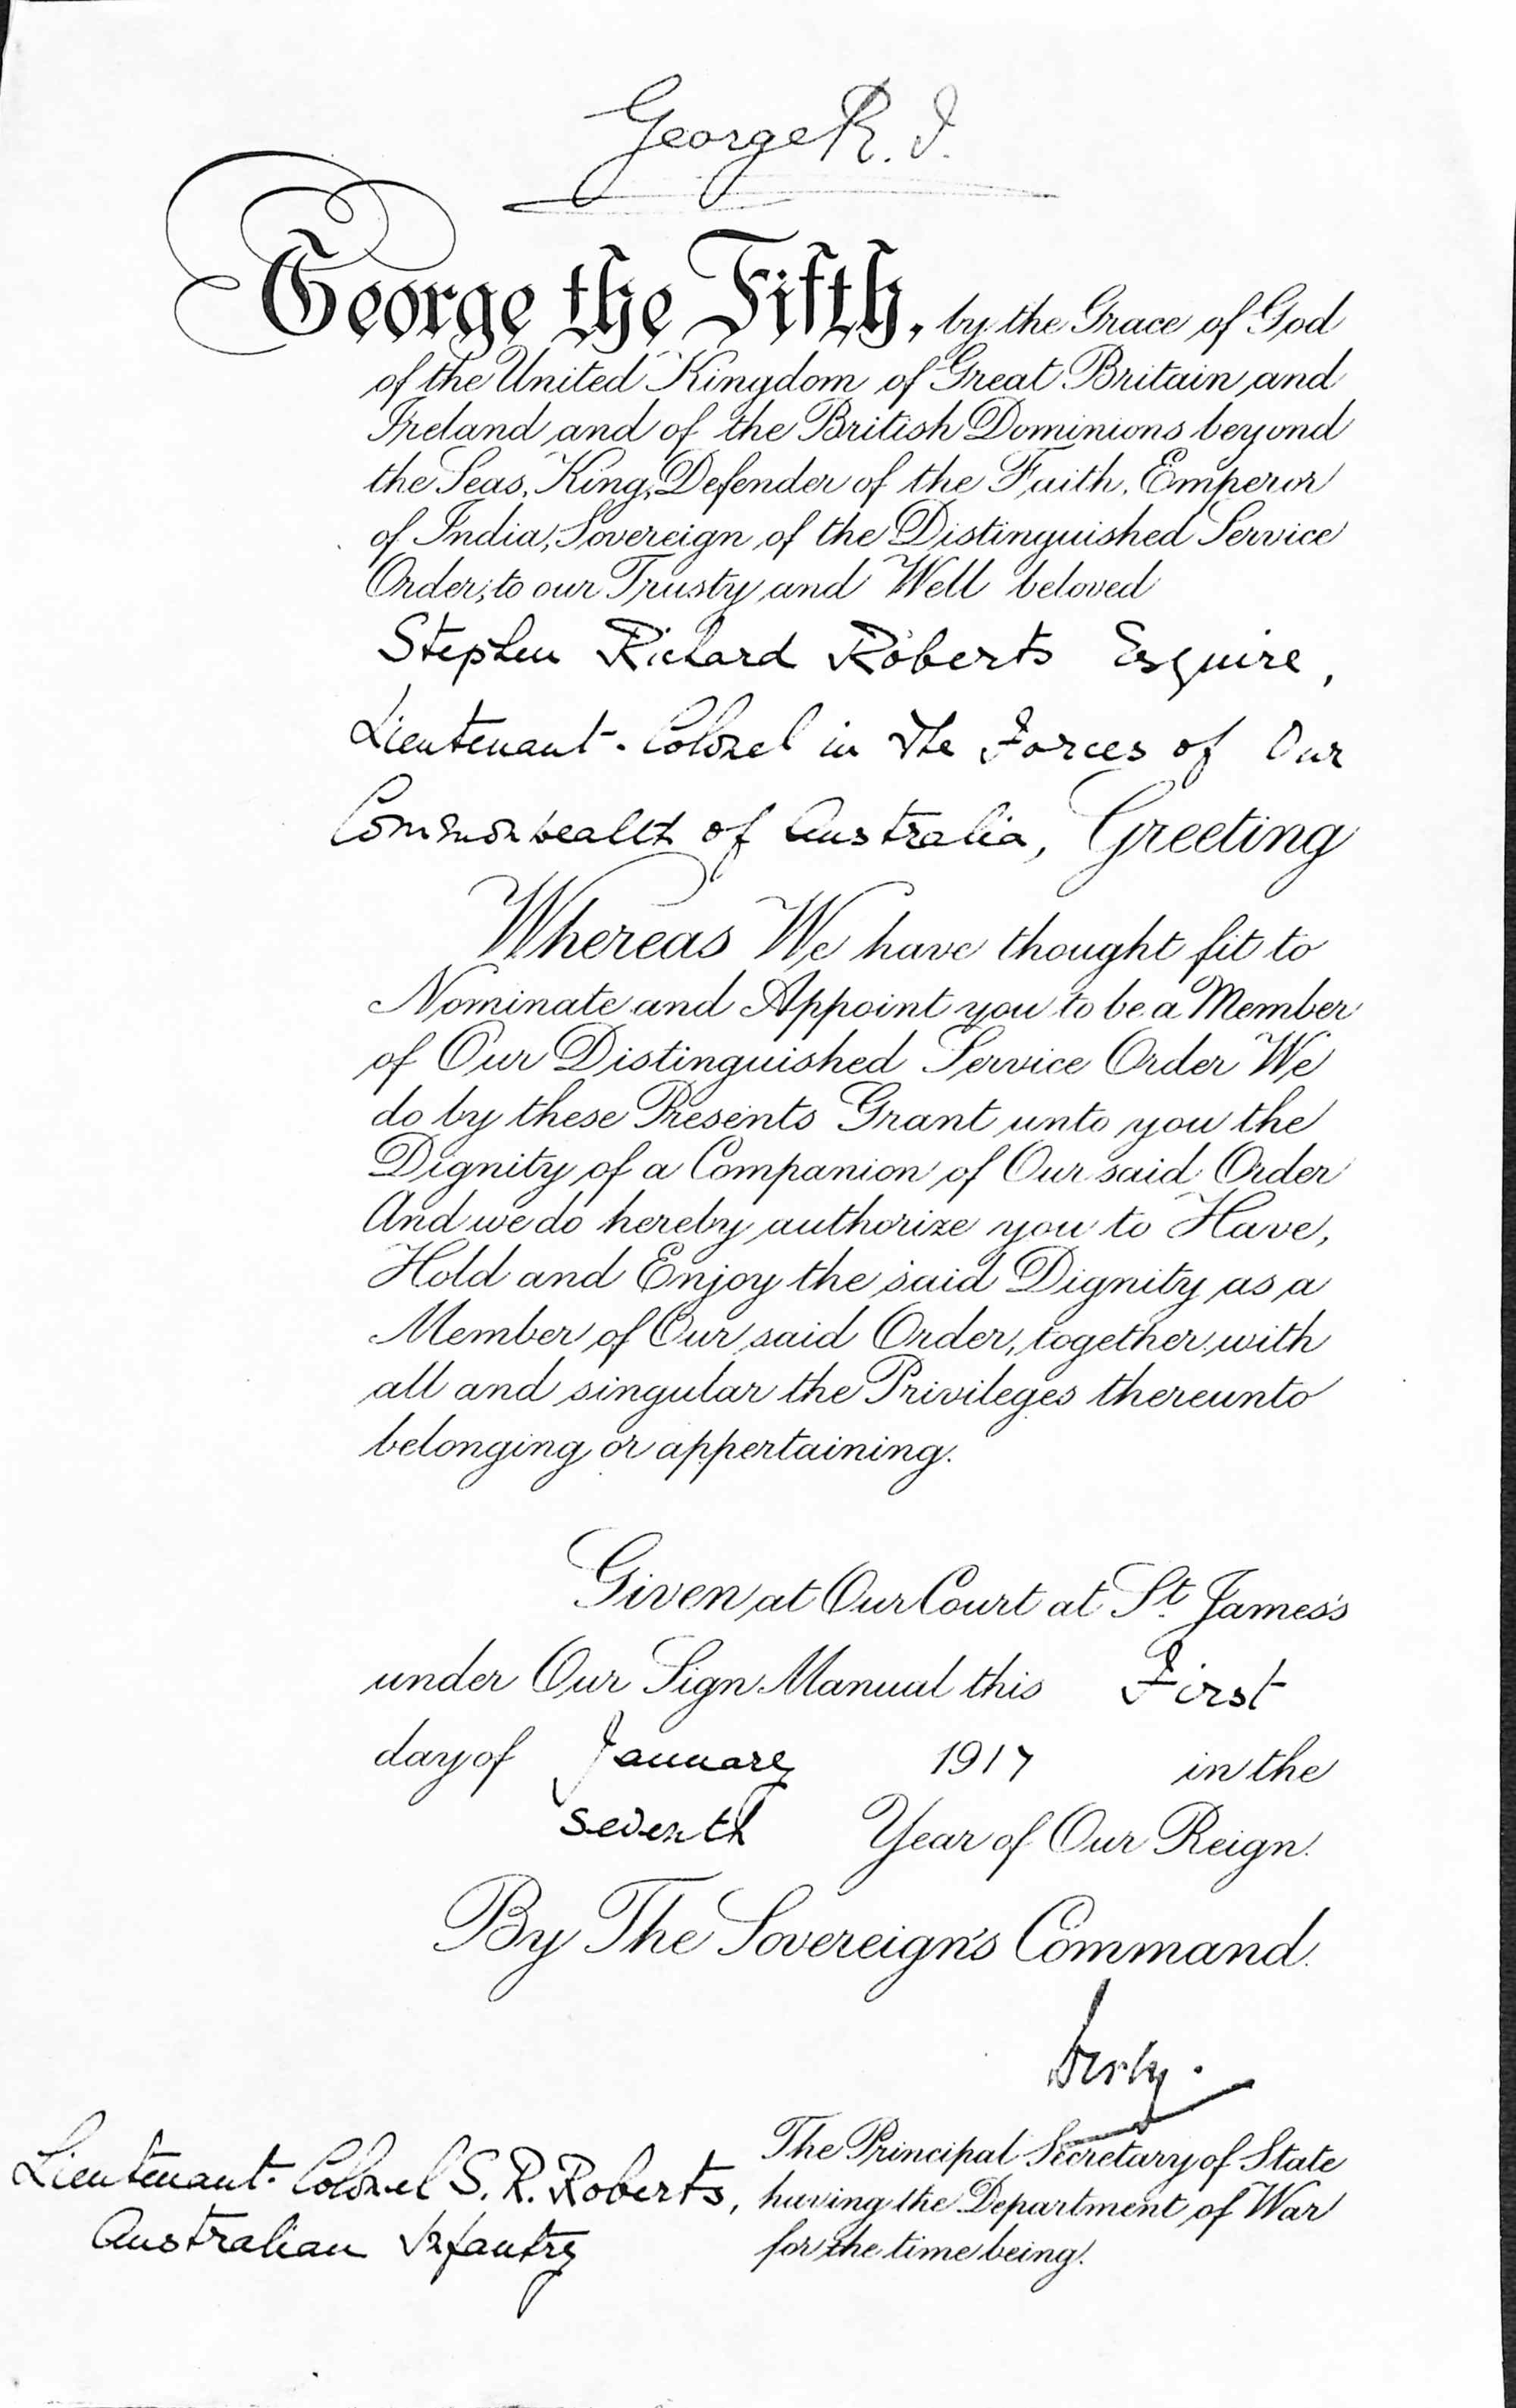 George R. I.
George the Fifth, by the Grace of God
of the United Kingdom of Great Britain and
Ireland and of the British Dominions beyond
the Seas, King, Defender of the Faith, Emperor
of India, Sovereign of the Distinguished Service
Order, to our Trusty and Well beloved
Stephen Richard Roberts Esquire,
Lieutenant-Colonel in the Forces of Our
Commonwealth of Australia, Greeting
Whereas We have thought fit to
Nominate and Appoint you to be a Member
of Our Distinguished Service Order We
do by these Presents Grant unto you the
Dignity of a Companion of Our said Order
And we do hereby authorize you to Have,
Hold and Enjoy the said Dignity as a
Member of Our said Order, together with
all and singular the Privileges thereunto
belonging or appertaining.
Given at Our Court at St. James's
under Our Sign Manual this First
day of January 1917 in the
Seventh Year of Our Reign.
By The Sovereign's Command.
Derby.
The Principal Secretary of State
having the Department of War
for the time being.
Lieutenant-Colonel S. R. Roberts,
Australian Infantry